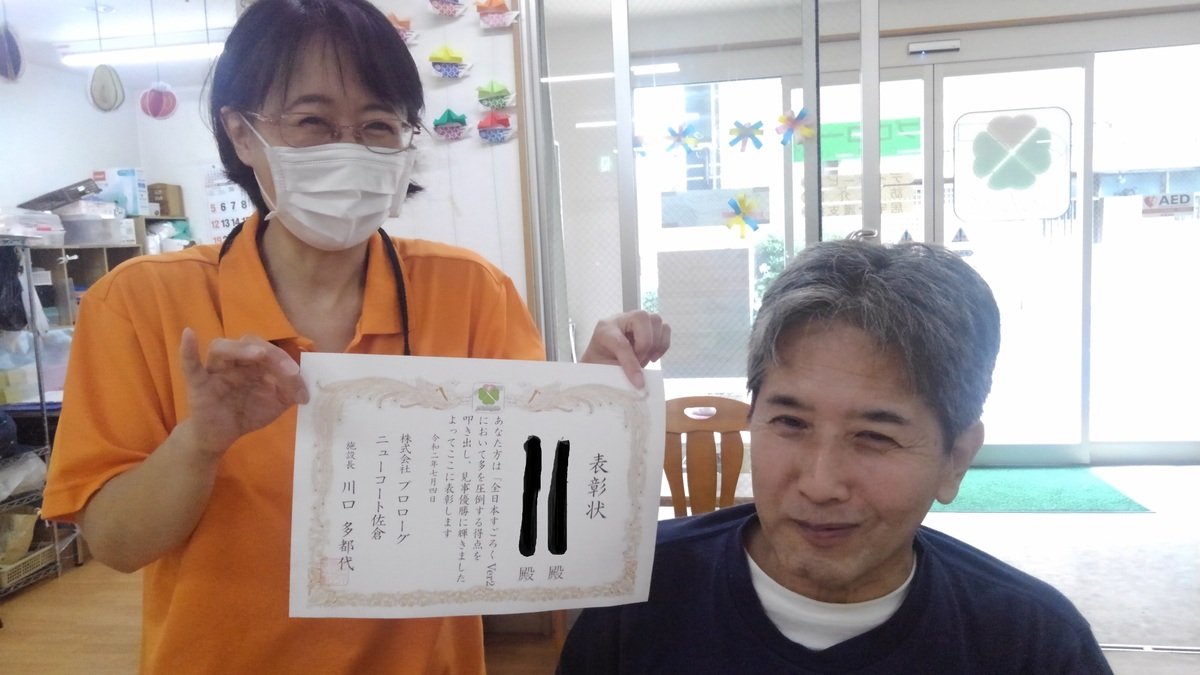 表彰状
殿
殿
あなた方は『全日本すごろくVer2
において多を圧倒する得点を
叩き出し、見事優勝に輝きました
よってここに表彰します
令和二年七月四日
株式会社 プロローグ
ニューコート佐倉
施設長 川口 多都代
5 6 7 8
12 13 14
AED